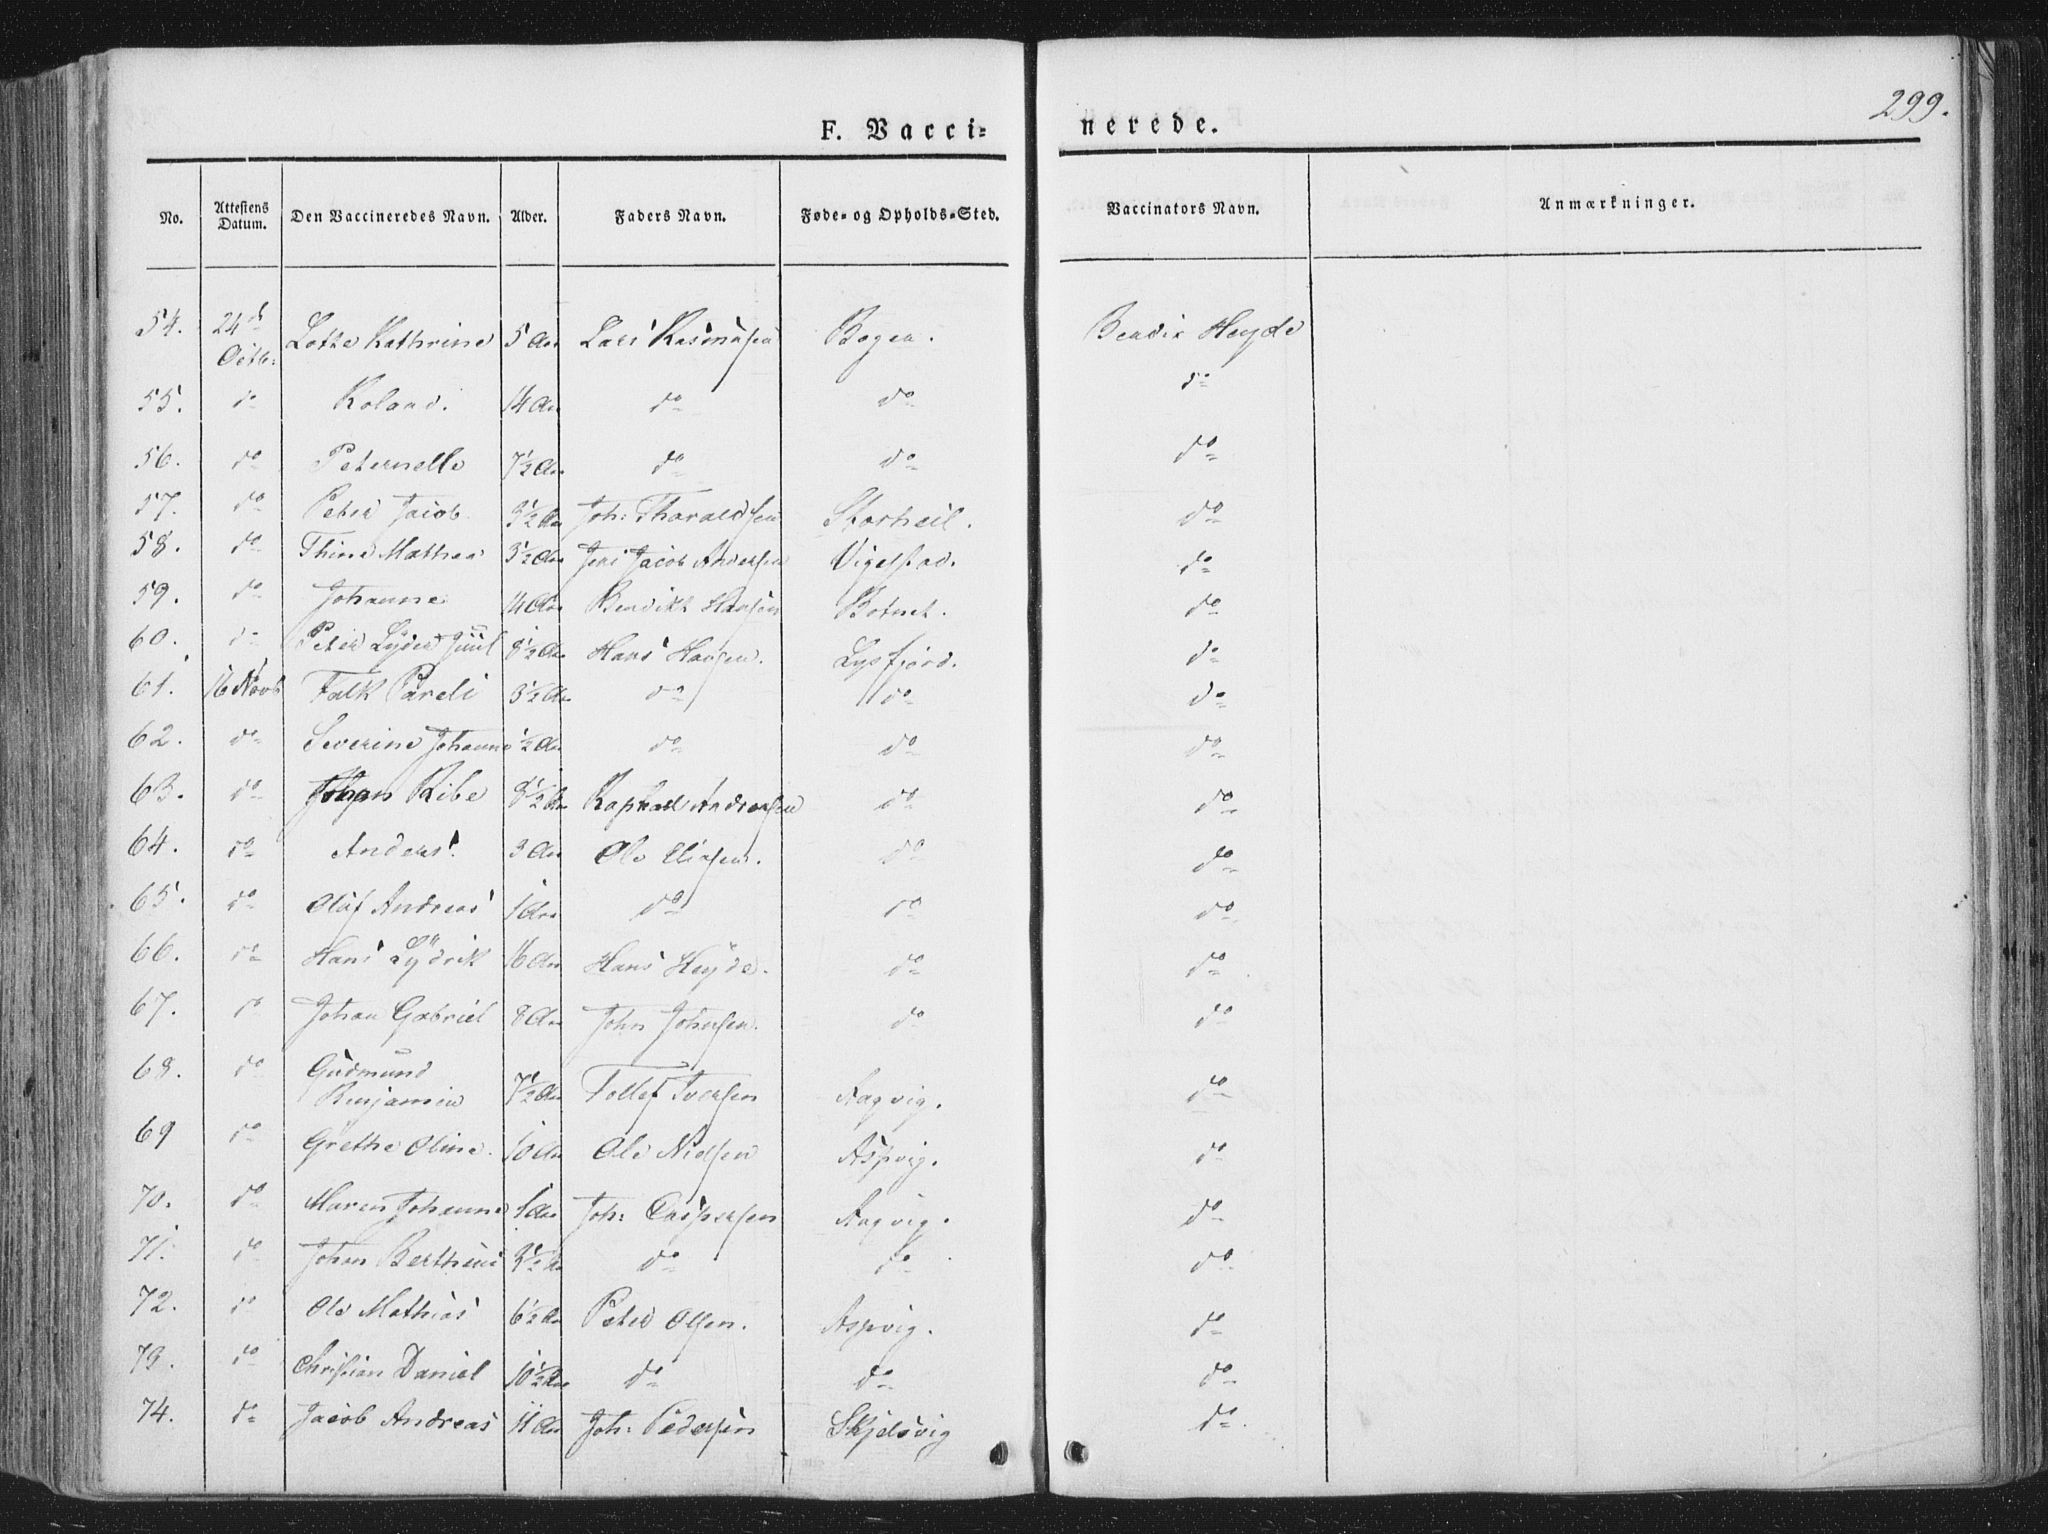 299.
F. Vacci= nerede.
No. Attestens Datum. Den Vaccineredes Navn. Alder. Faders Navn. Føde- og Opholds-Sted. Vaccinators Navn. Anmærkninger.
54. 24d Octb: Lotze Kathrine 5 Aar Lars Rasmusen Bogen. Bendix Heyde
55. do Roland. 14 Aar do do do
56. do Peternelle 7½ Aar do do do
57. do Peter Jacob 3½ Aar Joh: Tharaldsen Storheil. do
58. do Thine Mathea 3½ Aar Jens Jacob Andersen Vigelstad. do
59. do Johanne 14 Aar Bendikt Hansen Botnet. do
60. do Peter Lyder Juul 8½ Aar Hans Hansen. Lysfjord. do
61. 16 Novb Falk Pareli 3½ Aar do do do
62. do Severine Johanne ½ Aar do do do
63. do Johan Ribe 8½ Aar Raphael Andreasen do do
64. do Anders. 3 Aar Ole Eliasen. do do
65. do Oluf Andreas 1 Aar do do do
66. do Hans Lydrik 16 Aar Hans Heyde. do do
67. do Johan Gabriel 8 Aar John Johnsen. do do
68. do Gudmund Benjamin 7½ Aar Tollef Iversen Aagvig. do
69 do Grethe Oline. 10 Aar Ole Nielsen Aspvig. do
70. do Maren Johanne 1 Aar Joh: Caspersen Aagvig. do
71. do Johan Bertheus 3½ Aar do do do
72. do Ole Mathias 6½ Aar Peter Olsen. Aspvig. do
73. do Christian Daniel 10½ Aar do do do
74. do Jacob Andreas 11 Aar Joh: Pedersen Skjelsvig do